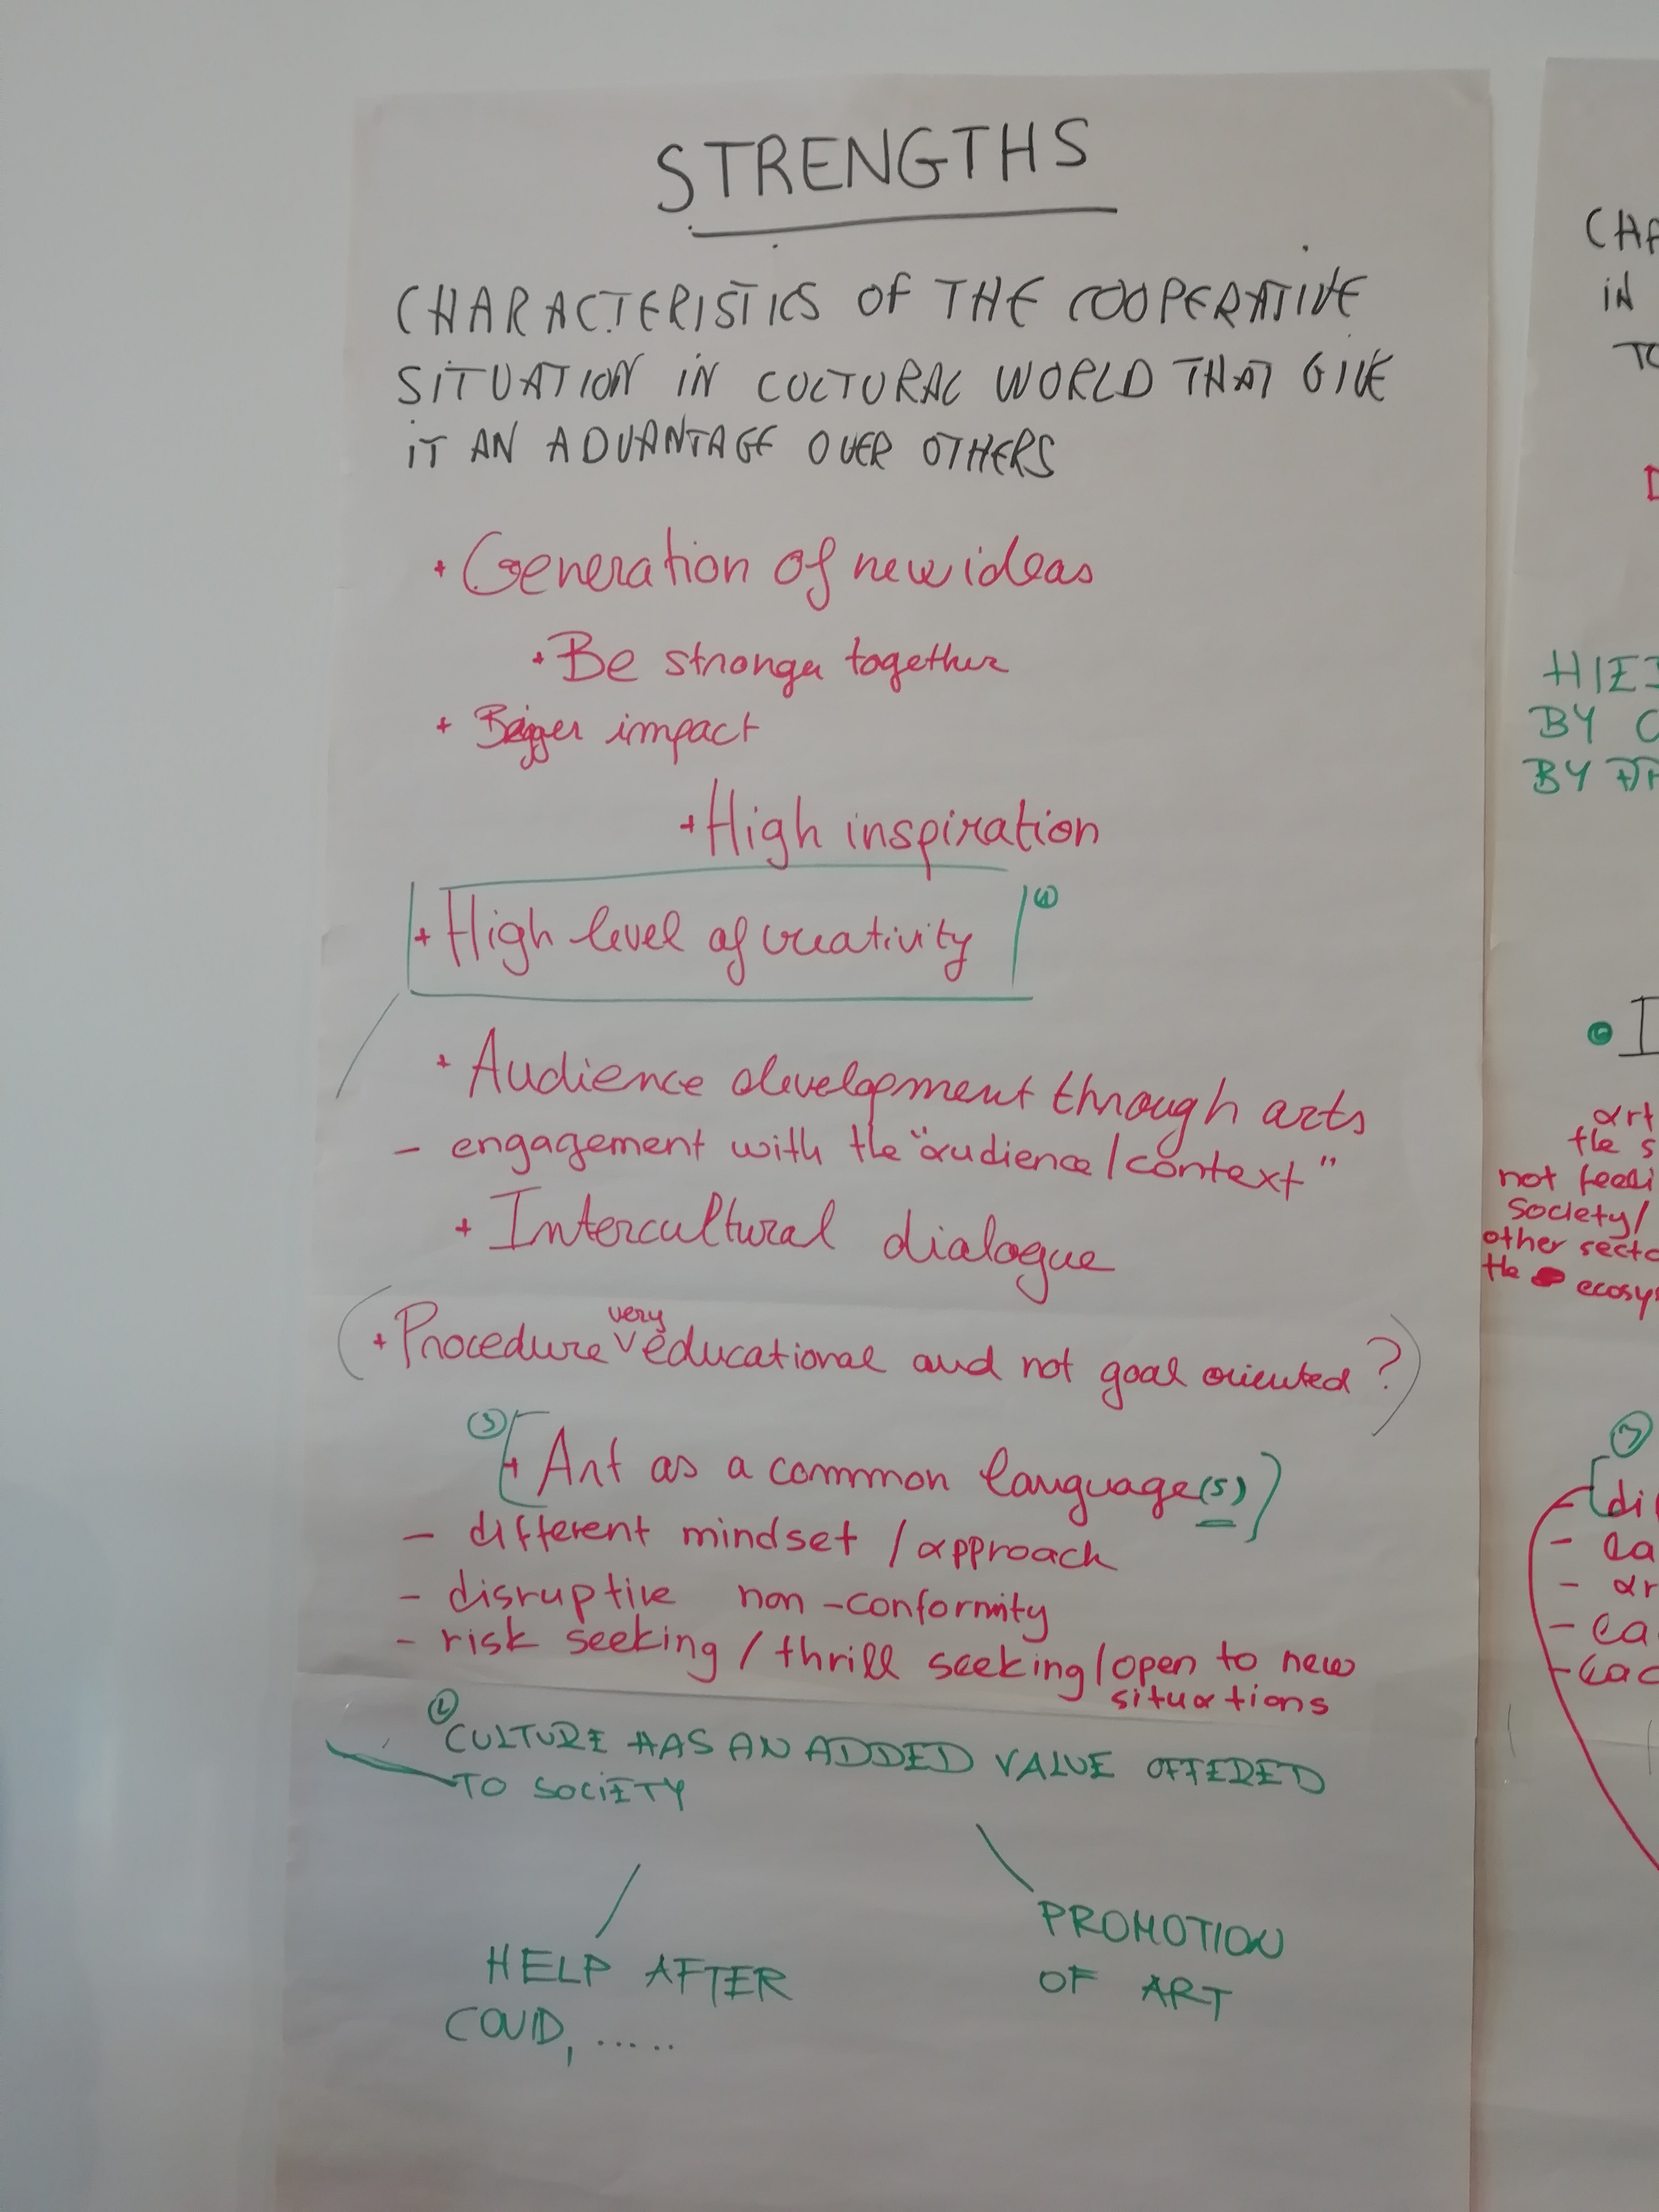 STRENGTHS
CHARACTERISTICS OF THE COOPERATIVE
SITUATION IN CULTURAL WORLD THAT GIVE
IT AN ADVANTAGE OVER OTHERS
+ Generation of new ideas
+ Be stronger together
+ Bigger impact
+ High inspiration
+ High level of creativity
①
+ Audience development through arts
- engagement with the "audience/context"
+ Intercultural dialogue
very
(+ Procedure V educational and not goal oriented?)
③
[+ Art as a common language(s)]
- different mindset / approach
- disruptive non-conformity
- risk seeking / thrill seeking / open to new
situations
②
CULTURE HAS AN ADDED VALUE OFFERED
TO SOCIETY
HELP AFTER
COVID, .....
PROMOTION
OF ART
CHA
IN
TO
BY
BY
art
the s
not feedi
society/
other secto
the ecosy
di
- ca
- ar
- ca